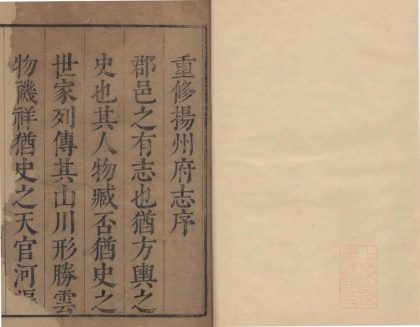 重修揚州府志序
郡邑之有志也猶方輿之
史也其人物臧否猶史之
世家列傳其山川形勝雲
物禨祥猶史之天官河渠